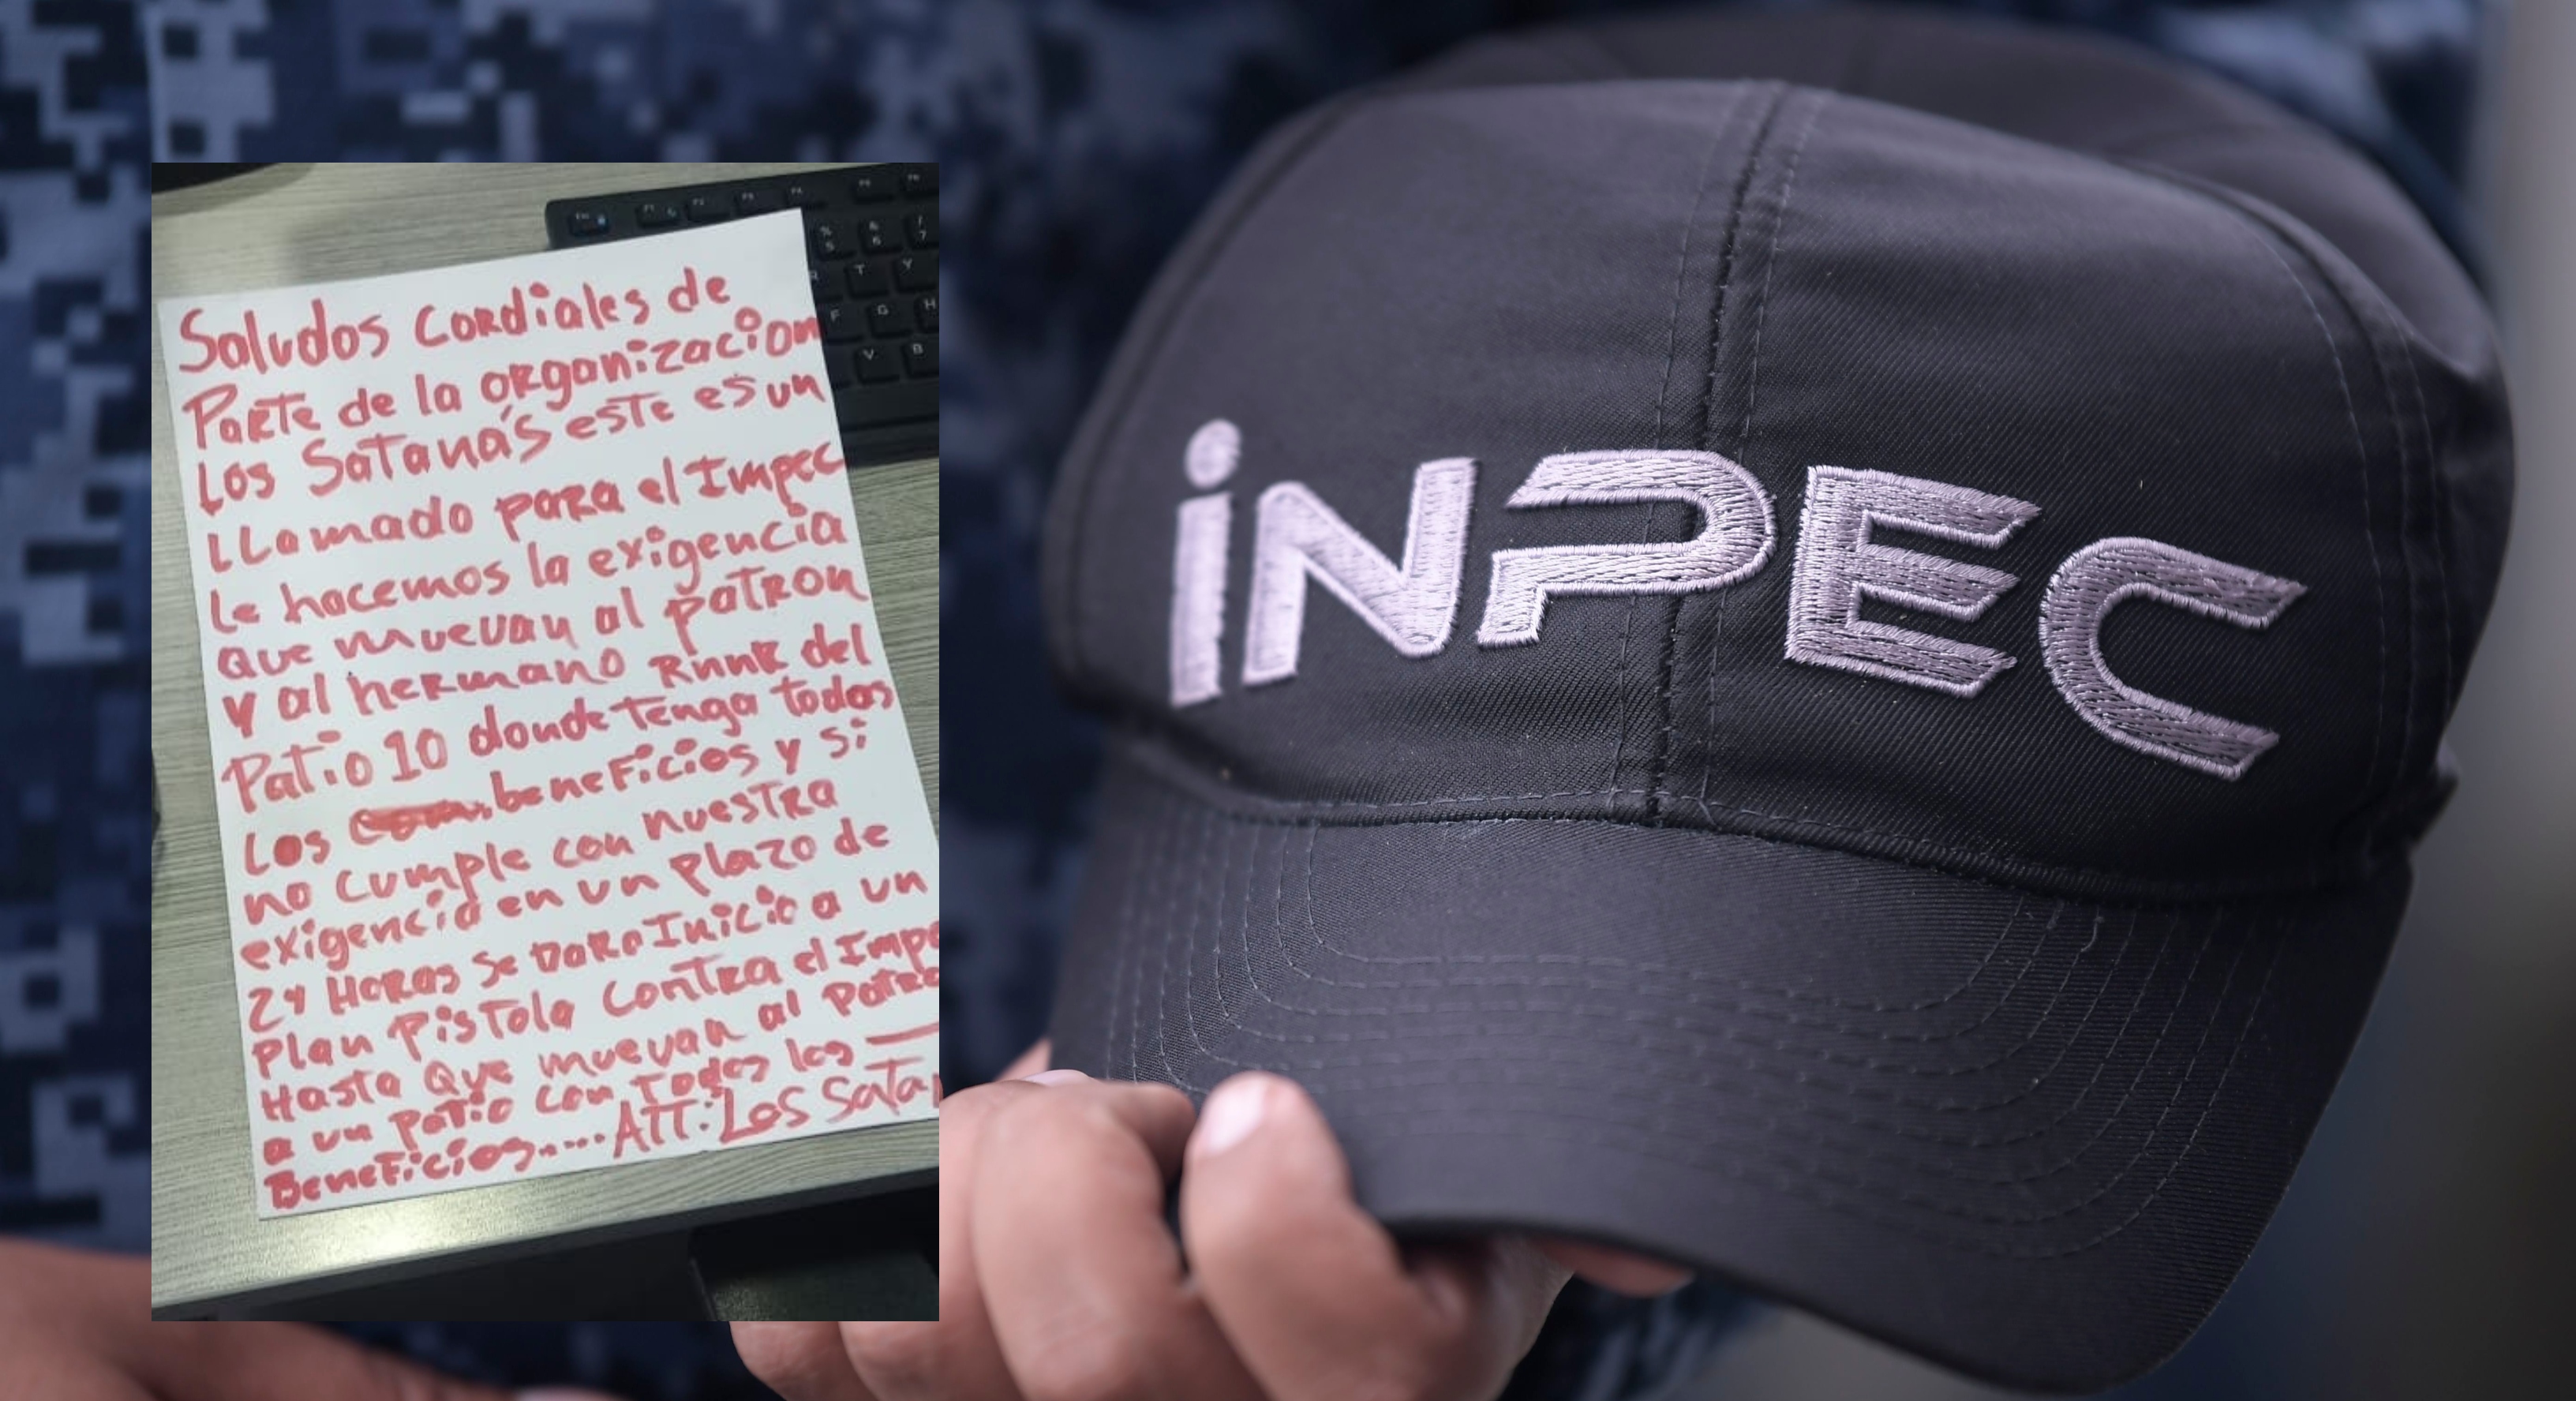 Saludos Cordiales de
Parte de la organizacion
Los Satanás este es un
LLamado para el Impec
Le hacemos la exigencia
que muevan al patron
y al hermano RnnR del
Patio 10 donde tenga todos
Los beneficios y si
no cumple con nuestra
exigencia en un plazo de
24 Horas se Dara Inicio a un
Plan Pistola contra el Impe
Hasta Que muevan al Patro
a un patio con Todos los
Beneficios.... ATT: Los Satan
iNPEC